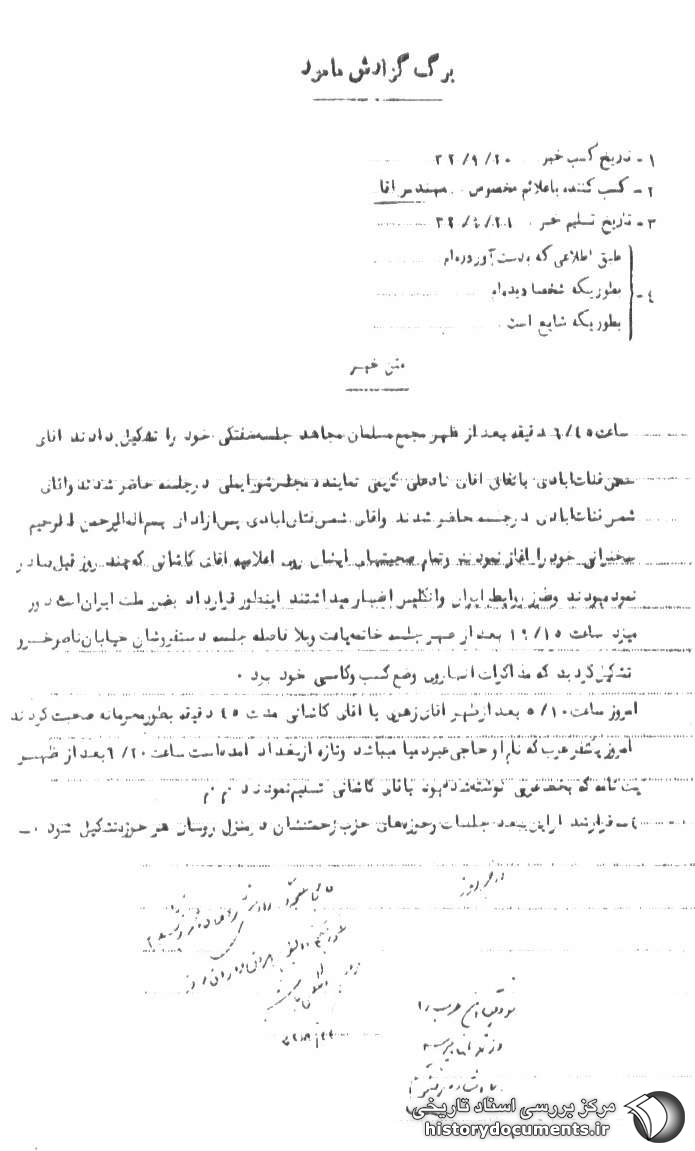 برگ گزارش مامور
۱- تاریخ کسب خبر ۳۲/۹/۲۰
۲- کسب کننده باعلائم مخصوص مهندس اقا
۳- تاریخ تسلیم خبر ۲۱/ /۳۲
۴- طبق اطلاعی که بدست آورده‌ام
بطوریکه شخصا دیده‌ام
بطوریکه شایع است
متن خبر
ساعت ۶/۴۵ دقیقه بعد از ظهر مجمع مسلمان مجاهد جلسه هفتگی خود را تشکیل دادند اقای
شمس قنات ابادی باتفاق اقای نادعلی کریمی نماینده مجلس شورایملی در جلسه حاضر شدند واقای
شمس قنات ابادی در جلسه حاضر شدند واقای شمس قنات ابادی پس از ادای بسم اله الرحمن الرحیم
سخنرانی خود را اغاز نمودند وتمام صحبتهای ایشان روی اعلامیه اقای کاشانی که چند روز قبل صادر
نموده بودند وضمن روابط ایران وانگلیس اظهار میداشتند اینطور قرارداد بضرر ملت ایران است دور
میزد ساعت ۱۹/۱۵ بعد از ظهر جلسه خاتمه یافت وبلا فاصله جلسه دستفروشان خیابان ناصرخسرو
تشکیل گردید که مذاکرات انها روی وضع کسب وکاسبی خود بود ۰
امروز ساعت ۵/۱۰ بعد از ظهر اقای زهری با اقای کاشانی مدت ۴۵ دقیقه بطور محرمانه صحبت کردند
امروز یکنفر عرب که نام او حاجی میباشد وتازه از بغداد امده است ساعت ۶/۲۰ بعد از ظهر
یک نامه که بخط عربی نوشته شده بود باقای کاشانی تسلیم نمودند
۴- قرار شد از این ببعد جلسات وحوزه‌های حزب زحمتکشان در منزل روسای هر حوزه تشکیل شود ۰-
مرکز بررسی اسناد تاریخی
historydocuments.ir